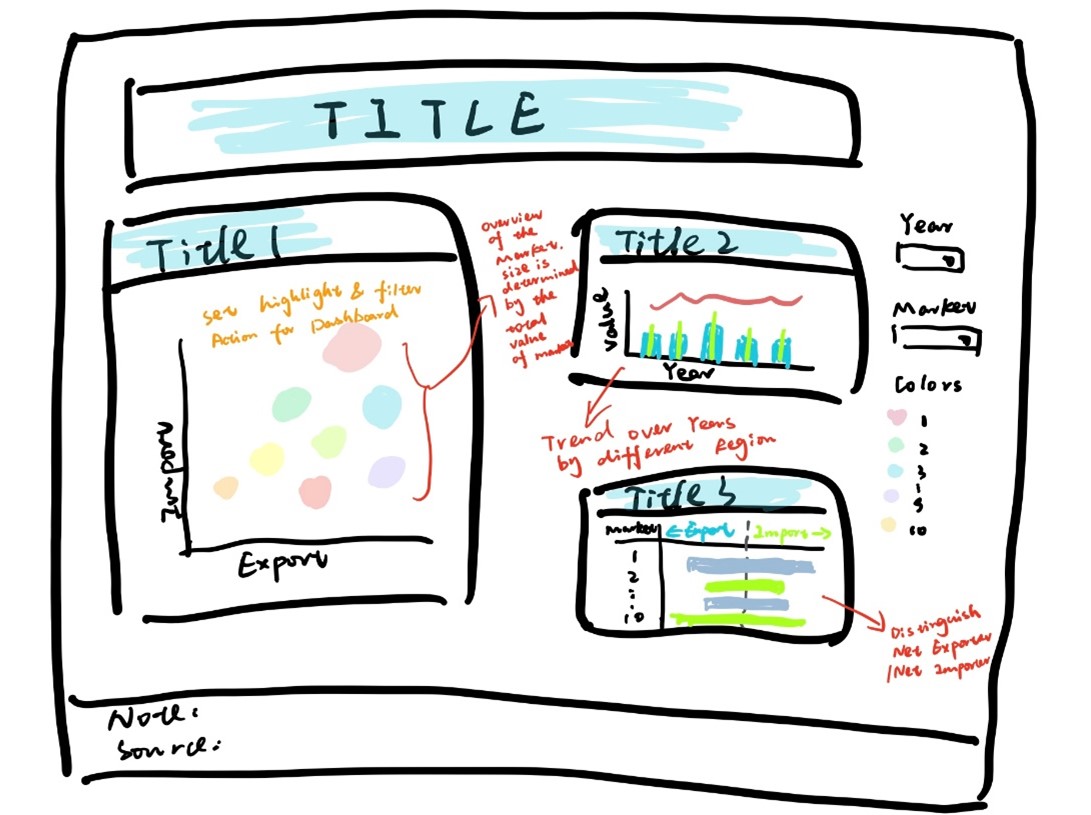 TITLE
Title 1
set highlight & filter
Action for Dashboard
Import
Export
overview
of the
market.
size is
determined
by the
total
value
of market
Title 2
value
Year
Trend over Years
by different Region
Title 3
Market
←Export
Import→
1
2
10
Distinguish
Net Exporter
/Net Importer
Year
Market
Colors
1
2
3
5
10
Note:
Source: